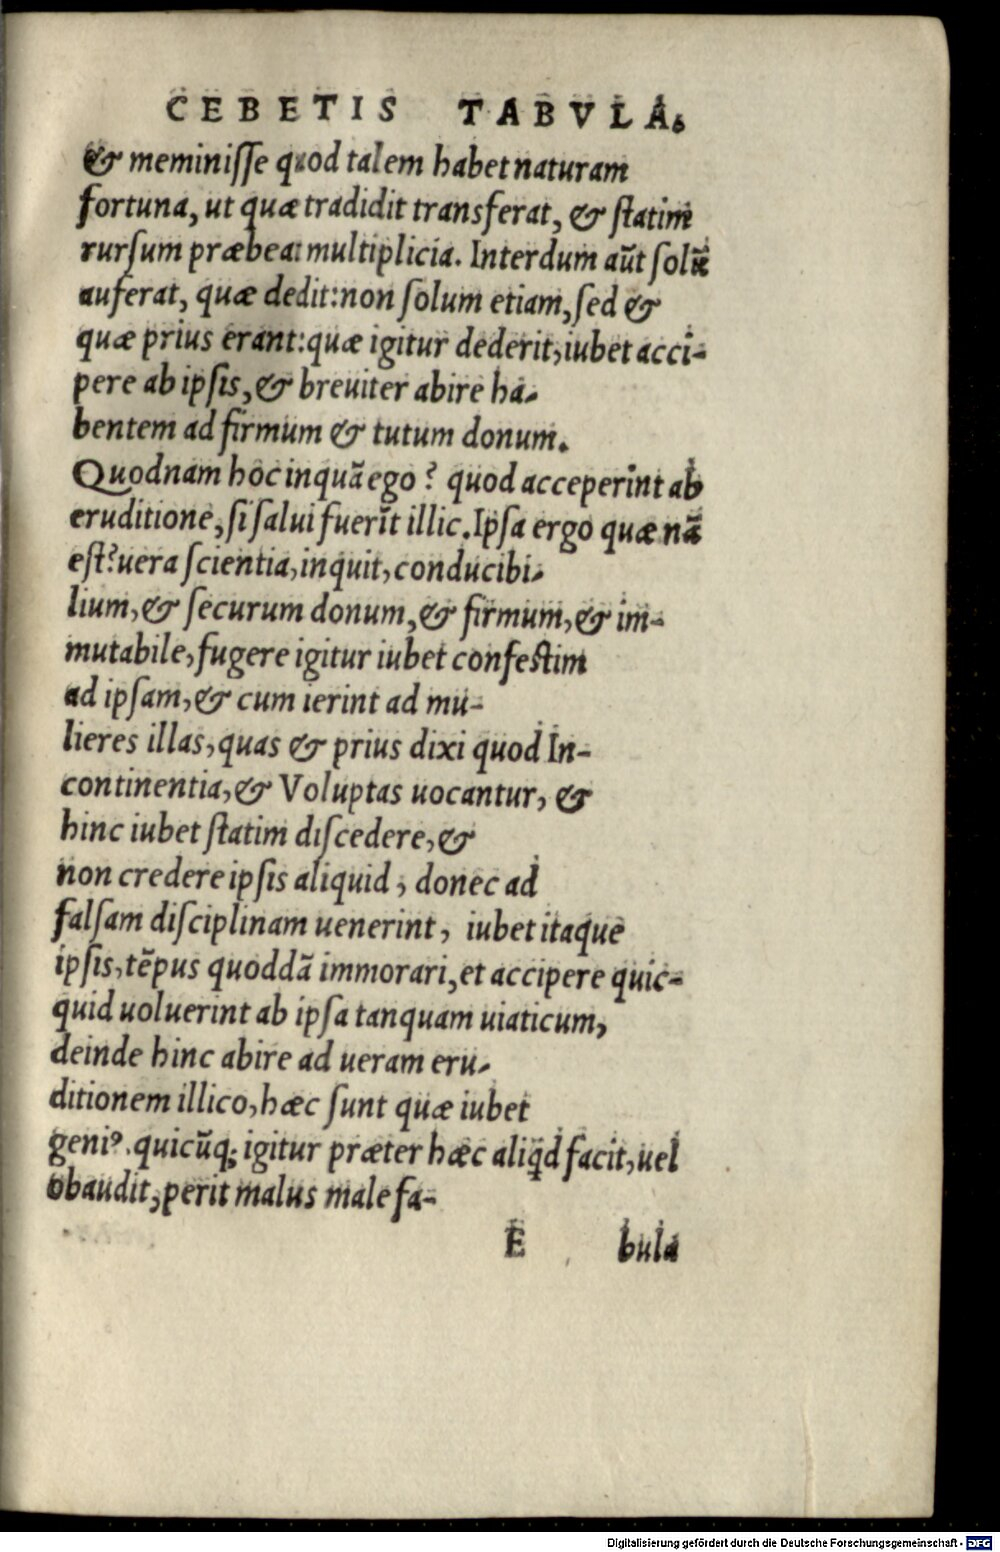 CEBETIS TABVLA.
& meminisse quod talem habet naturam
fortuna, ut quæ tradidit transferat, & statim
rursum præbeat multiplicia. Interdum aūt solū
auferat, quæ dedit: non solum etiam, sed &
quæ prius erant: quæ igitur dederit, iubet acci-
pere ab ipsis, & breuiter abire ha-
bentem ad firmum & tutum donum.
Quodnam hoc inquā ego? quod acceperint ab
eruditione, si salui fuerīt illic. Ipsa ergo quæ nā
est? uera scientia, inquit, conducibi-
lium, & securum donum, & firmum, & im-
mutabile, fugere igitur iubet confestim
ad ipsam, & cum ierint ad mu-
lieres illas, quas & prius dixi quod In-
continentia, & Voluptas uocantur, &
hinc iubet statim discedere, &
non credere ipsis aliquid, donec ad
falsam disciplinam uenerint, iubet itaque
ipsis, tēpus quoddā immorari, et accipere quic-
quid uoluerint ab ipsa tanquam uiaticum,
deinde hinc abire ad ueram eru-
ditionem illico, hæc sunt quæ iubet
geniꝰ. quicūq; igitur præter hæc aliqd facit, uel
obaudit, perit malus male fa-
E bula
Digitalisierung gefördert durch die Deutsche Forschungsgemeinschaft - DFG